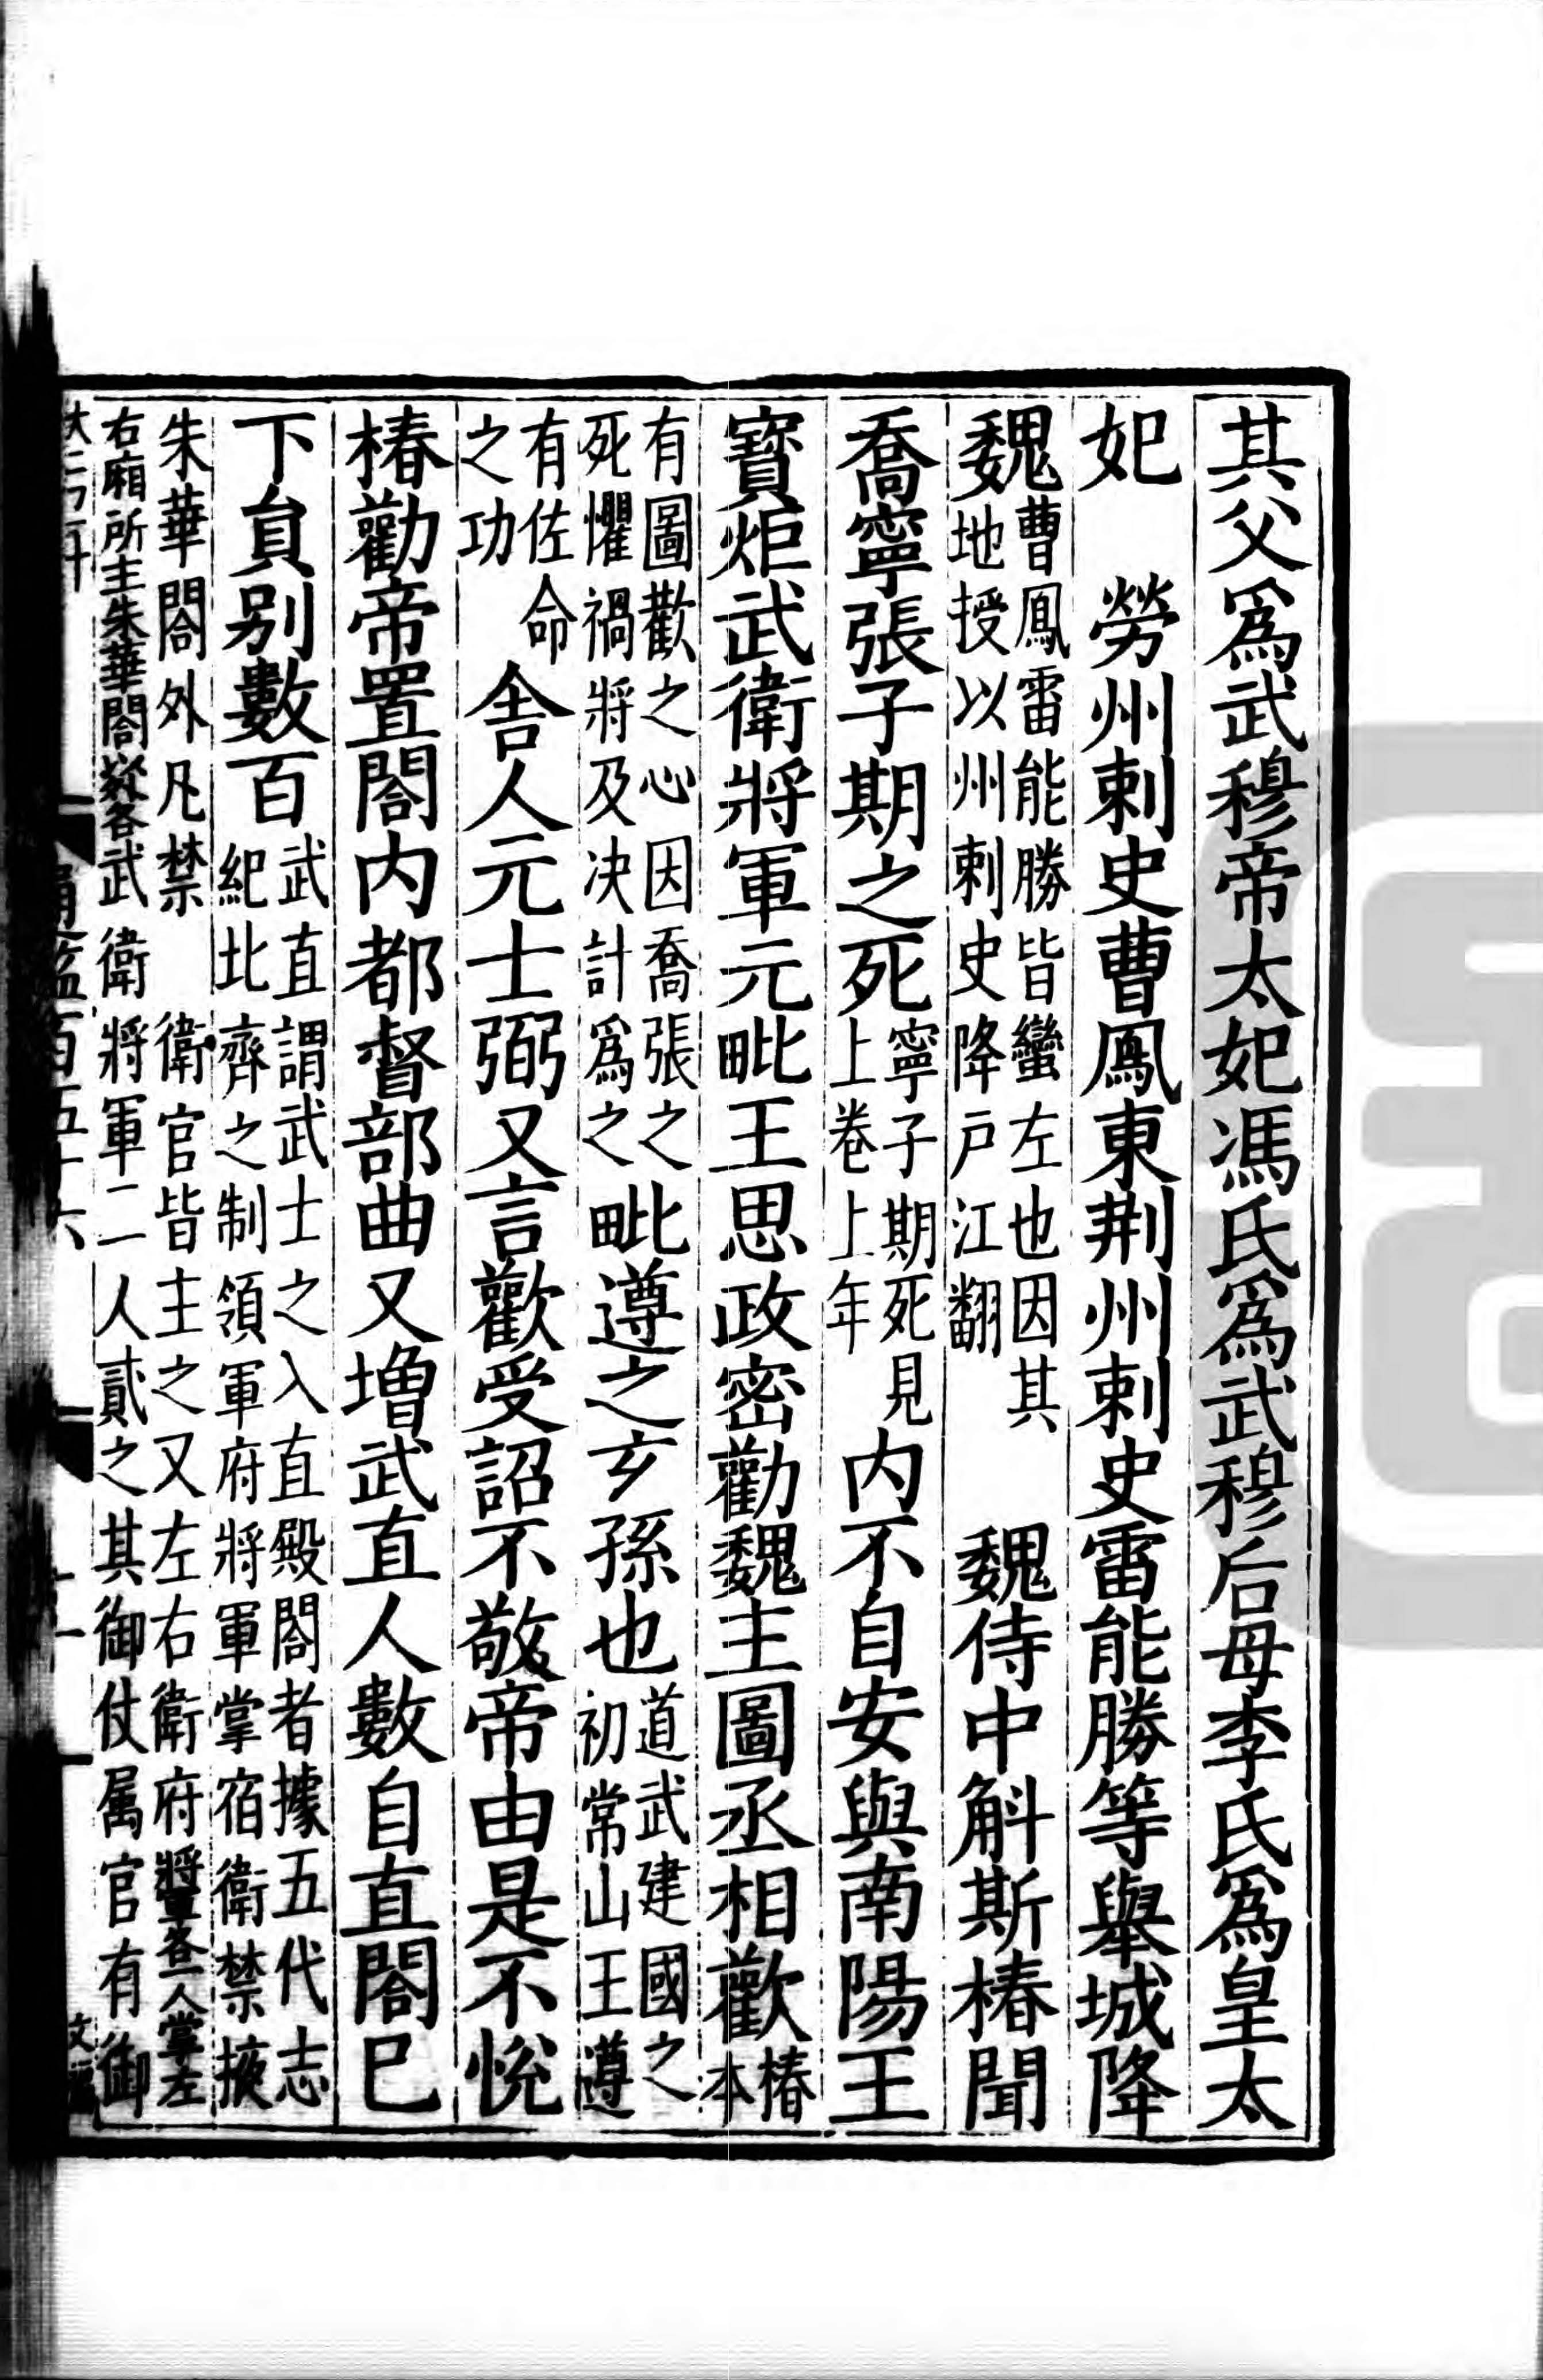 其父爲武穆帝太妃馮氏爲武穆后母李氏爲皇太
妃　勞州剌史曹鳳東荆州剌史雷能勝等舉城降
魏曹鳳雷能勝皆蠻左也因其地授以州剌史降戸江翻　魏侍中斛斯椿聞
喬寧張子期之死寧子期死見上卷上年内不自安與南陽王
寳炬武衛將軍元毗王思政密勸魏主圖丞相歡椿本
有圖歡之心因喬張之死懼禍將及决計爲之毗遵之玄孫也道武建國之初常山王遵
有佐命之功舎人元士弼又言歡受詔不敬帝由是不悦
椿勸帝置閤内都督部曲又増武直人數自直閤巳
下貟别數百武直謂武士之入直殿閤者據五代志紀北齊之制領軍府將軍掌宿衛禁掖
朱華閤外凡禁衛官皆主之又左右衛府將軍各一人掌左
右廂所主朱華閤以外各武衛將軍二人貳之其御仗属官有御